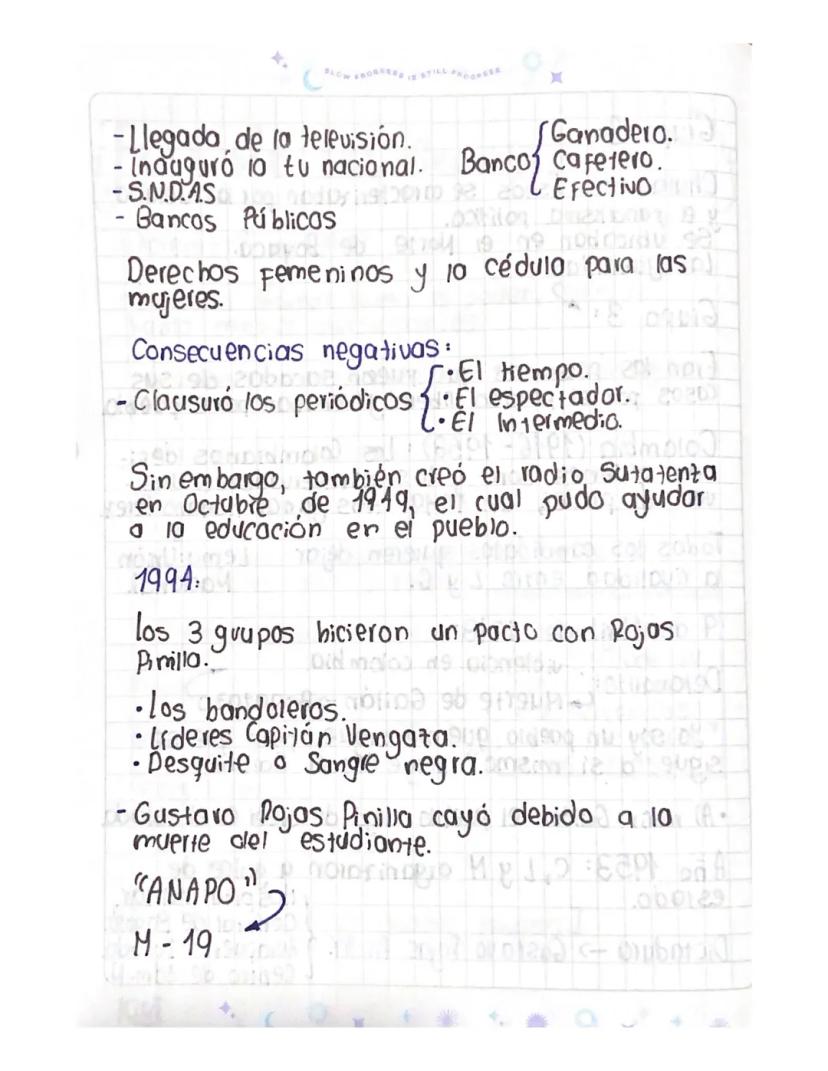 SLOW PROGRESS IS STILL PROGRESS
-Llegada de la televisión.
- Inauguró la tv nacional.
- S.N.D.A.S
- Bancos Públicos
Banco
Ganadero.
Cafetero.
Efectivo
Derechos femeninos y la cédula para las
mujeres.
Consecuencias negativas:
- Clausuró los periódicos
• El tiempo.
• El espectador.
• El Intermedio.
Sin embargo, también creó el radio Sutatenta
en Octubre de 1949, el cual pudo ayudar
a la educación en el pueblo.
1994:
los 3 grupos hicieron un pacto con Rojas
Pinilla.
• Los bandoleros.
• Líderes Capitán Vengaza.
• Desquite o Sangre negra.
- Gustavo Rojas Pinilla cayó debido a la
muerte del estudiante.
"ANAPO"
M - 19